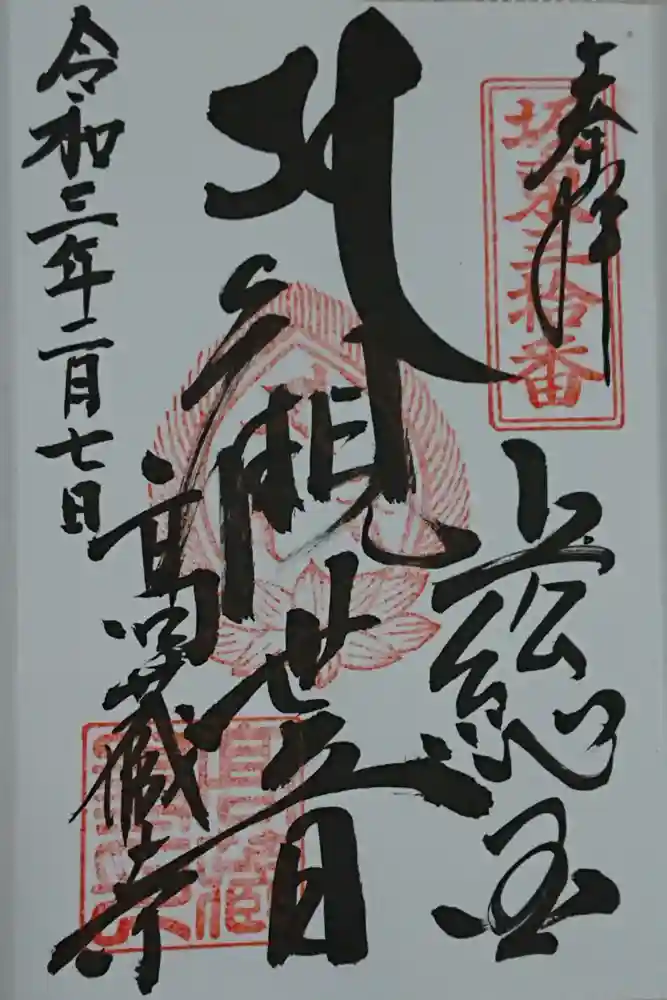 奉拝
坂東三拾番
上総国
観世音
高蔵寺
令和三年二月七日